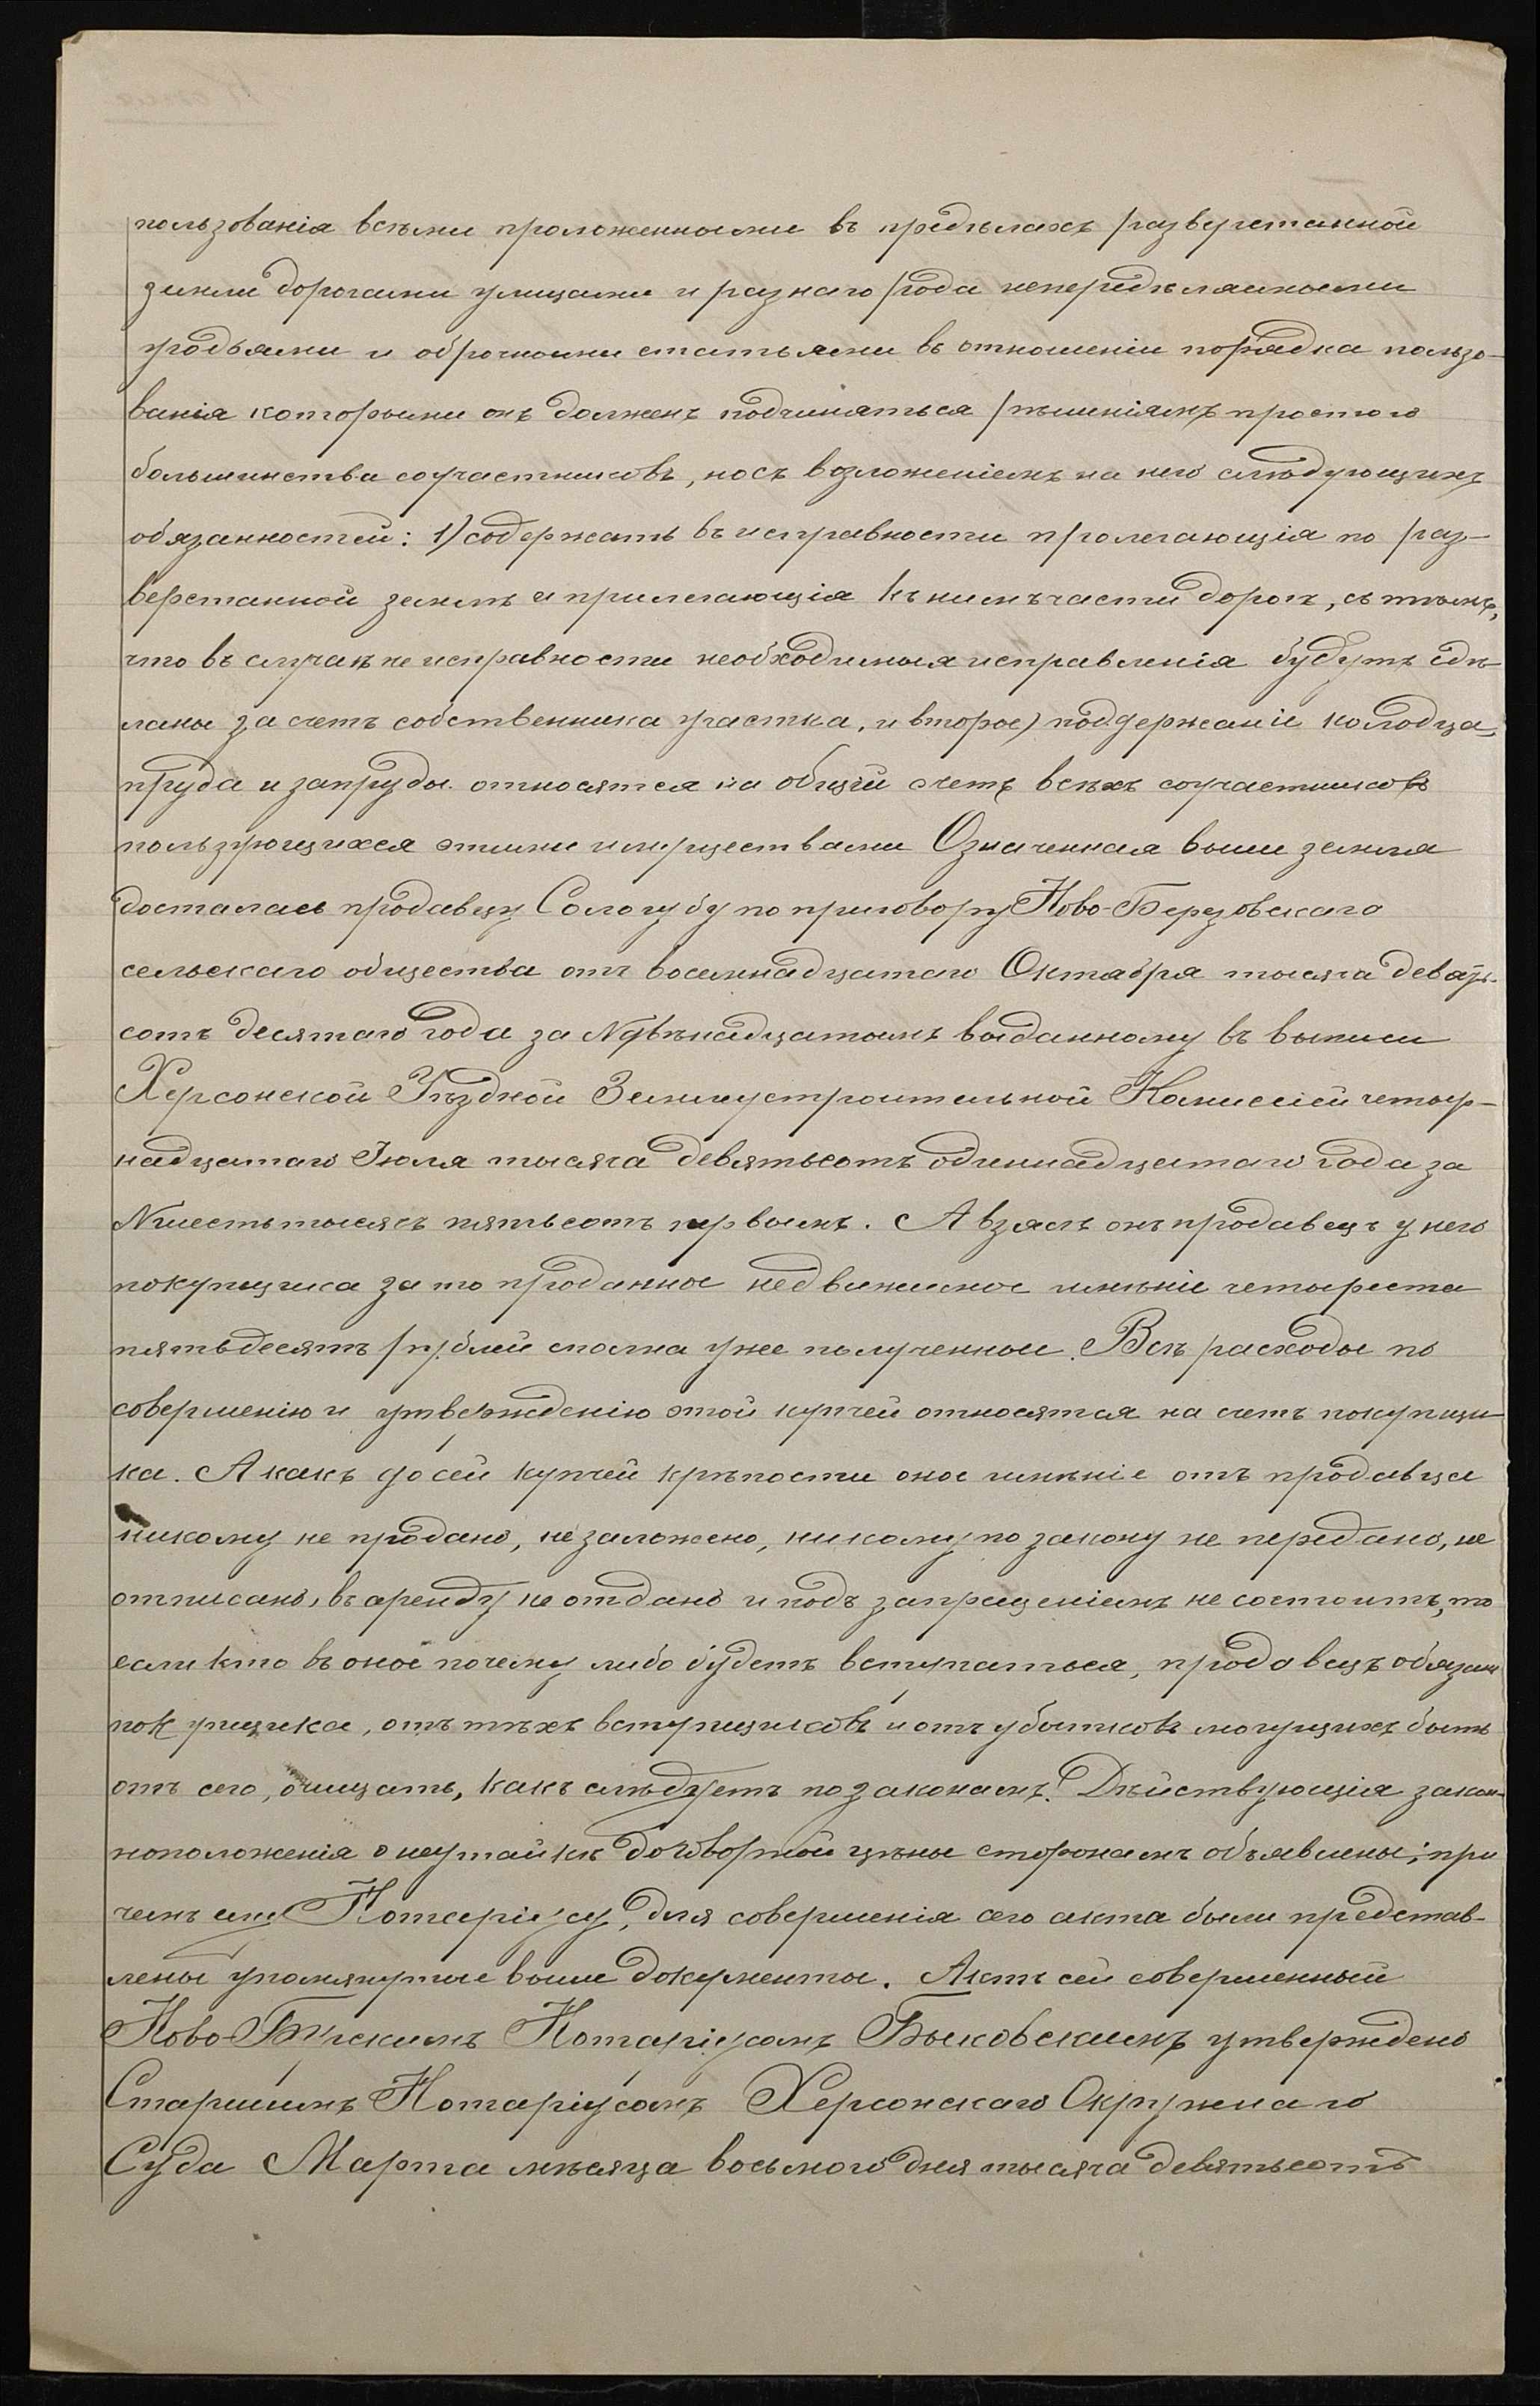 пользованія всѣми проложенными въ предѣлахъ разверстанной
земли дорогами улицами и разнаго рода непередѣляиными
угодьями и оброчными статьями въ отношеніи порядка пользо-
ванія которыми онъ долженъ подчиняться рѣшеніямъ простого
большинства соучастниковъ, но съ возложеніемъ на него слѣдующихъ
обязанностей: 1) содержать въ исправности пролегающія по раз-
верстанной землѣ и прилегающія къ нимъ части дорогъ, съ тѣмъ,
что въ случаѣ не исправности необходимыя исправленія будутъ сдѣ-
ланы за счетъ собственника участка, и второе) поддержаніе колодца,
пруда и запруды относятся на общій счетъ всѣхъ соучастниковъ
пользующихся этими имуществами Означенная выше земля
досталась продавцу Сологубу по приговору Ново-Березовскаго
сельскаго общества отъ восемнадцатаго Октября тысяча девять-
сотъ десятаго года за № двѣнадцатымъ выданному въ выписи
Херсонской Уѣздной Землеустроительной Комиссіей четыр-
надцатаго Іюля тысяча девятьсотъ одиннадцатаго года за
№ шесть тысячъ пятьсотъ первымъ. А взялъ онъ продавецъ у него
покупщика за то проданное недвижимое имѣніе четыреста
пятьдесятъ рублей сполна уже полученные. Всѣ расходы по
совершенію и утвержденію этой купчей относятся на счетъ покупщи-
ка. А какъ до сей купчей крѣпости оное имѣніе отъ продавца
никому не продано, не заложено, никому по закону не передано, не
отписано, въ аренду не отдано и подъ запрещеніемъ не состоитъ, то
если кто въ оное почему либо будетъ вступаться, продавецъ обязан
покупщика, отъ тѣхъ вступщиковъ и отъ убытковъ могущихъ быть
отъ сего, очищать, какъ слѣдуетъ по законамъ. Дѣйствующія закон-
ноположенія о неутайкѣ договорной цѣны сторонамъ объявлены; при
чемъ мнѣ Нотаріусу, для совершенія сего акта были представ-
лены упомянутые выше документы. Актъ сей совершенный
Ново-Бугскимъ Нотаріусомъ Быковскимъ утверждено
Старшимъ Нотаріусомъ Херсонскаго Окружнаго
Суда Марта мѣсяца восьмого дня тысяча девятьсотъ